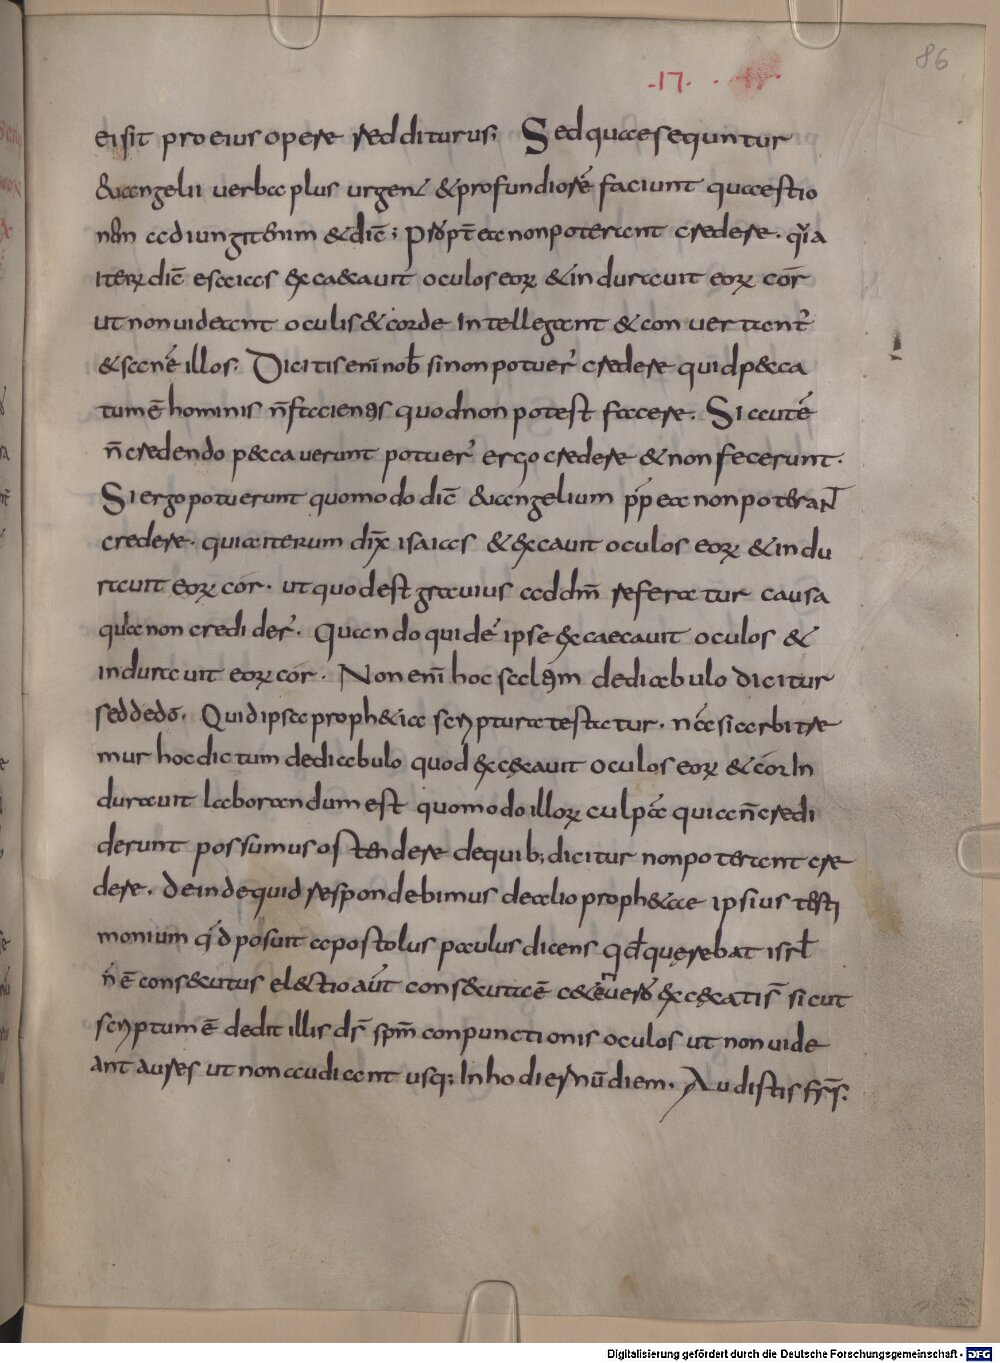 86
.17.
ei sit pro eius opere redditurus; Sed quae sequntur
&uangelii uerba plus urgen̄ & profundiorē faciunt quaestio
nēm adiungit enim & dic̄; Propt̄ ea non poterant credere. qͥa
iterꝝ dic̄ esaias & excaecauit oculos eoꝝ & indurauit eoꝝ cor
ut non uideant oculis & corde intellegant & conuertant̄
& sanē illos. Dicitis enī nob̄ si non potuer̄ credere quid pecca
tum ē hominis n̄ faciens quod non potest facere. Si autē
n̄ credendo peccauerunt potuer̄ ergo credere & non fecerunt.
Si ergo potuerunt quomodo dic̄ &uangelium pp̄ ea non poterant
credere. quia iterum dix̄ isaias & excauit oculos eoꝝ & indu
rauit eoꝝ cor. ut quod est grauius ad dm̄ referatur causa
qua non credider̄. Quando quidē ipse excaecauit oculos &
indurauit eoꝝ cor. Non enī hoc saltim de diabulo dicitur
sed de dō. Quid ipsa proph&ica scriptura testatur. nā si arbitre
mur hoc dictum de diabulo quod excęcauit oculos eoꝝ & cor in
durauit laborandum est quomodo illoꝝ culpā quia n̄ credi
derunt possumus ostendere de quib; dicitur non poterant cre
dere. Deinde quid respondebimus de alio proph&ae ipsius testi
monium qđ posuit apostolus paulus dicens qđ querebat isrł
n̄ ē consecutus electio aut̄ consecuta ē ceteri uero excęcati s̄ sicut
scriptum ē dedit illis ds̄ spm̄ conpunctionis oculos ut non uide
ant aures ut non audiant usq; in hodiernū diem. Audistis frs̄.
Digitalisierung gefördert durch die Deutsche Forschungsgemeinschaft - DFG